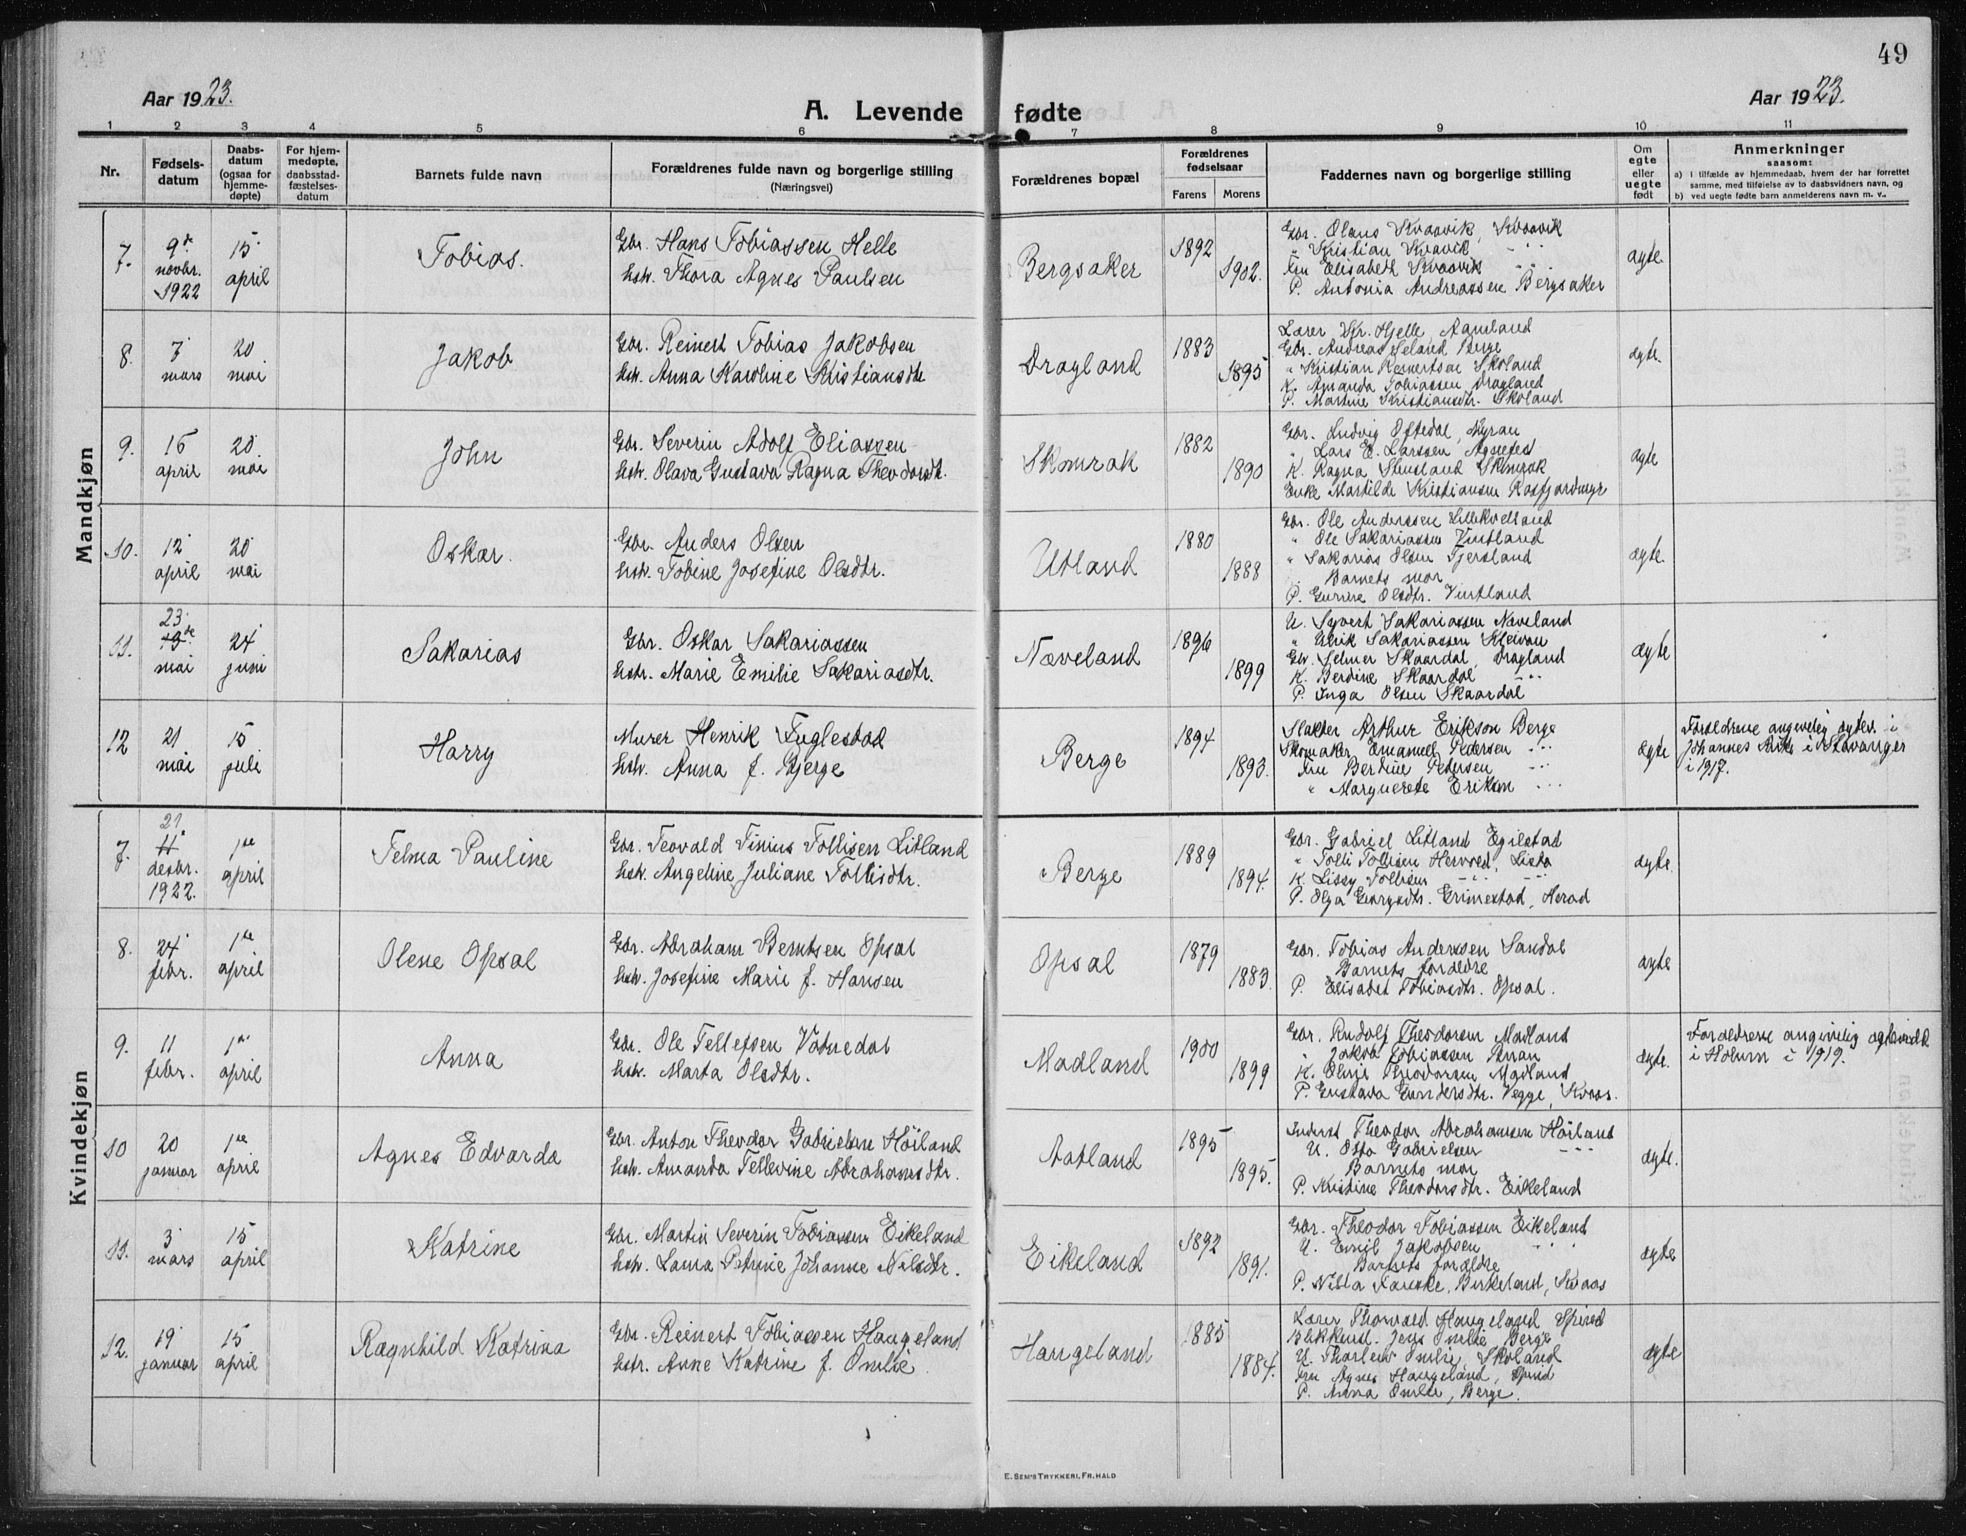 49
Aar 1923.
A. Levende fødte
Aar 1923.
1 2 3 4 5 6 7 8 9 10 11
Nr.
Fødsels-
datum
Daabs-
datum
(ogsaa for
hjemme-
døpte)
For hjem-
medøpte,
daabsstad-
fæstelses-
datum
Barnets fulde navn
Forældrenes fulde navn og borgerlige stilling
(Næringsvei)
Forældrenes bopæl
Forældrenes
fødselsaar
Farens Morens
Faddernes navn og borgerlige stilling
Om
egte
eller
uegte
født
Anmerkninger
saasom:
a) I tilfælde av hjemmedaab, hvem der har forrettet
samme, med tilføielse av to daabsvidners navn, og
b) ved uegte fødte barn anmelderens navn m. v..
Mandkjøn
7. 9de novbr. 1922 15 april Tobias.
Gbr. Hans Tobiassen Helle
hstr. Thora Agnes Paulsen
Bergsaker 1892 1902.
Gbr. Olaus Kvaavik, Kvaavik
" Kristian Kvavik " "
Fru Elisabeth Kvaavik " "
P. Antonia Andreassen Bergsaker
ægte.
8. 7 mars 20 mai Jakob
Gbr. Reinert Tobias Jakobsen
hstr. Anna Karoline Kristiansdtr
Dragland 1883 1895
Lærer Kr. Hjelle, Aamland
Gbr. Andreas Seland Berge
" Kristian Reinertsen Skoland
K. Amanda Tobiassen Dragland
P. Martine Kristiansdtr. Skoland
ægte.
9. 15 april 20 mai John
Gbr. Severin Adolf Eliassen
hstr. Olava Gustava Ragna Theodorsdt.
Skomrak 1882 1890
Gbr. Ludvig Oftedal, Myran
" Lars E. Larssen Agnefest
K. Ragna Stusland Skomrak
Enke Martilde Kristiansen Rosfjordmyr
ægte
10. 12 april 20 mai Oskar.
Gbr. Anders Olsen
hstr. Tobine Josefine Olsdtr.
Utland 1880 1888
Gbr. Ole Anderssen Lillekvelland
" Ole Sakariassen Vintland
" Sakarias Olsen Fjersland
Barnets mor
P. Gurine Olsdtr. Vintland
ægte.
11. 23 mai 24 juni Sakarias
Gbr. Oskar Sakariassen
hstr. Marie Emilie Sakariasdtr.
Næveland 1896 1899
U. Syvert Sakariassen Næveland
" Ulrik Sakariassen Kleivan
Gbr. Selmer Skaardal, Dragland
K. Berdine Skaardal " "
P. Inga Olsen Skaardal
ægte
12 21 mai 15 juli Harry
Murer Henrik Fuglestad
hstr. Anna f. Bjerge
Berge 1894 1893.
Slakter Arthur Erikson Berge
Skomaker Emanuel Pedersen " "
Fru Berdine Petersen " "
" Marguerete Erikson " "
ægte
Forældrene angivelig ægtev. i
Johannes Kirke i Stavanger
i 1917.
Kvindekjøn
7. 21 desbr. 1922. 1ste april Telma Pauline
Gbr. Teovald Tinius Tollisen Litland
hstr. Angeline Juliane Tollisdtr.
Berge 1889 1894.
Gbr. Gabriel Litland Egilstad
" Tolli Tollisen Hervod, Lista
K. Lissy Tollisen " "
P. Olga Georgsdtr. Grimestad, Herad
ægte.
8. 24 febr. 1ste april Olene Opsal
Gbr. Abraham Berntsen Opsal
hstr. Josefine Marie f. Hansen
Opsal 1879 1883.
Gbr. Tobias Anderssen Sandal
Barnets forældre
P. Elisabet Tobiasdtr. Opsal.
ægte
9. 11 febr. 1ste april Anna
Gbr. Ole Tellefsen Vatnedal
hstr. Marta Olsdtr.
Madland 1900 1899
Gbr. Rudolf Theodorsen Madland
" Jakob Tobiassen Aman
K. Olvie Theodorsen Madland
P. Gustava Gundersdtr. Vegge, Kvaas.
ægte.
Forældrene angivelig ægteviedt
i Holum i 1919.
10 20 januar 1ste april Agnes Edvarda
Gbr. Anton Theodor Gabrielsen Höiland
hstr. Amanda Tellevine Abrahamsdtr.
Aatland 1895 1895.
Inderst Theodor Abrahamsen Höiland
U. Otto Gabrielsen " "
Barnets mor
P. Kristine Theodorsdtr. Eikeland
ægte.
11. 3 mars 15 april Katrine
Gbr. Martin Severin Tobiassen Eikeland
hstr. Lama Petrine Johanne Nilsdtr.
Eikeland 1892 1891.
Gbr. Theodor Tobiassen Eikeland
U. Emil Jakobsen " "
Barnets forældre
P. Nilla Birkeland, Kvaas
ægte
12. 19 januar 15 april Ragnhild Katrina
Gbr. Reinert Tobiassen Haugeland
hstr. Anne Katrine f. Omlie.
Haugeland 1885 1884.
Lærer Thorvald Haugeland Spind
Blikksl. Jens Omlie Berge
U. Tharlew Omlie, Skoland
Fru Agnes Haugeland, Spind
P. Anna Omlie, Berge.
ægte
E. Sem's Trykkeri, Fr.hald